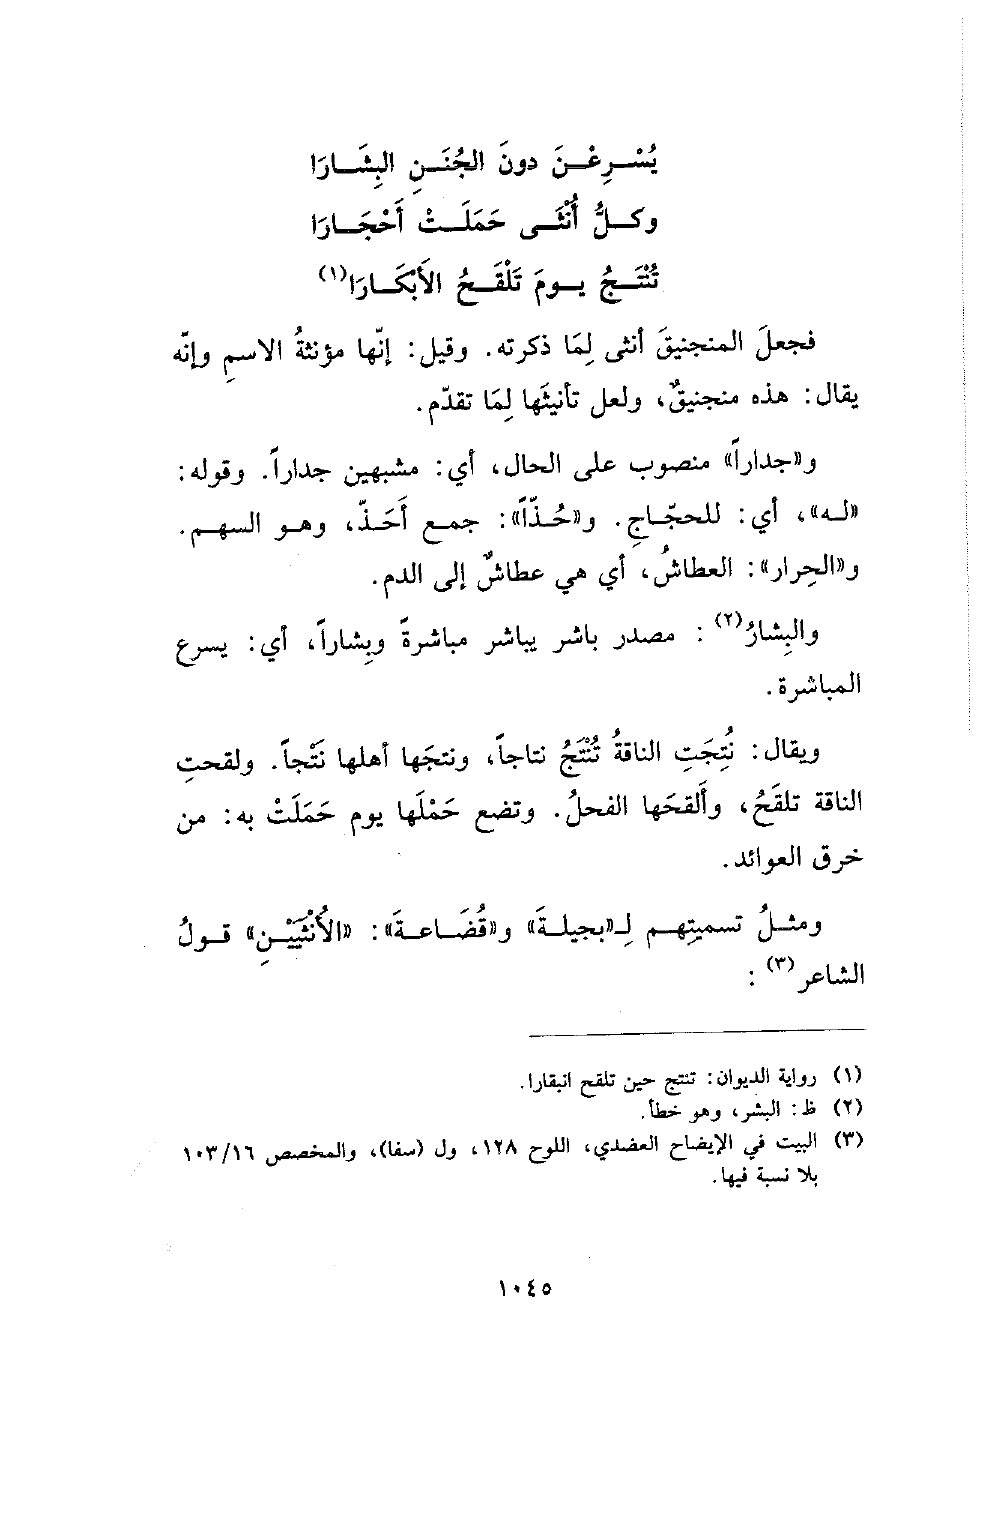 يُسْرِعْنَ دونَ الجُنَنِ البِشَارَا
وكلُّ أُنْثَى حَمَلَتْ أَحْجَارَا
تُنْتَجُ يومَ تَلْقَحُ الأَبْكَارَا(١)
فجعلَ المنجنيقَ أنثى لِمَا ذكرته. وقيل: إنّها مؤنثةُ الاسمِ وإنّه
يقال: هذه منجنيقٌ، ولعل تأنيثَها لِمَا تقدّم.
و«جداراً» منصوب على الحال، أي: مشبهين جداراً. وقوله:
«له»، أي: للحجّاجِ. و«حُذّاً»: جمع أَحَذّ، وهو السهم.
و«الحِرار»: العطاشُ، أي هي عطاشٌ إلى الدم.
والبِشارُ(٢): مصدر باشر يباشر مباشرةً وبِشاراً، أي: يسرع
المباشرة.
ويقال: نُتِجَتِ الناقةُ تُنْتَجُ نتاجاً، ونتجَها أهلها نَتْجاً. ولقحتِ
الناقة تلقَحُ، وأَلقحَها الفحلُ. وتضع حَمْلَها يوم حَمَلَتْ به: من
خرق العوائد.
ومثلُ تسميتِهم لِـ«بجيلةَ» و«قُضَاعةَ»: «الأُنْثَيَيْنِ» قولُ
الشاعر(٣):
(١) رواية الديوان: تنتج حين تلقح انبقارا.
(٢) ظ: البشر، وهو خطأ.
(٣) البيت في الإيضاح العضدي، اللوح ١٢٨، ول (سفا)، والمخصص ١٠٣/١٦
بلا نسبة فيها.
١٠٤٥